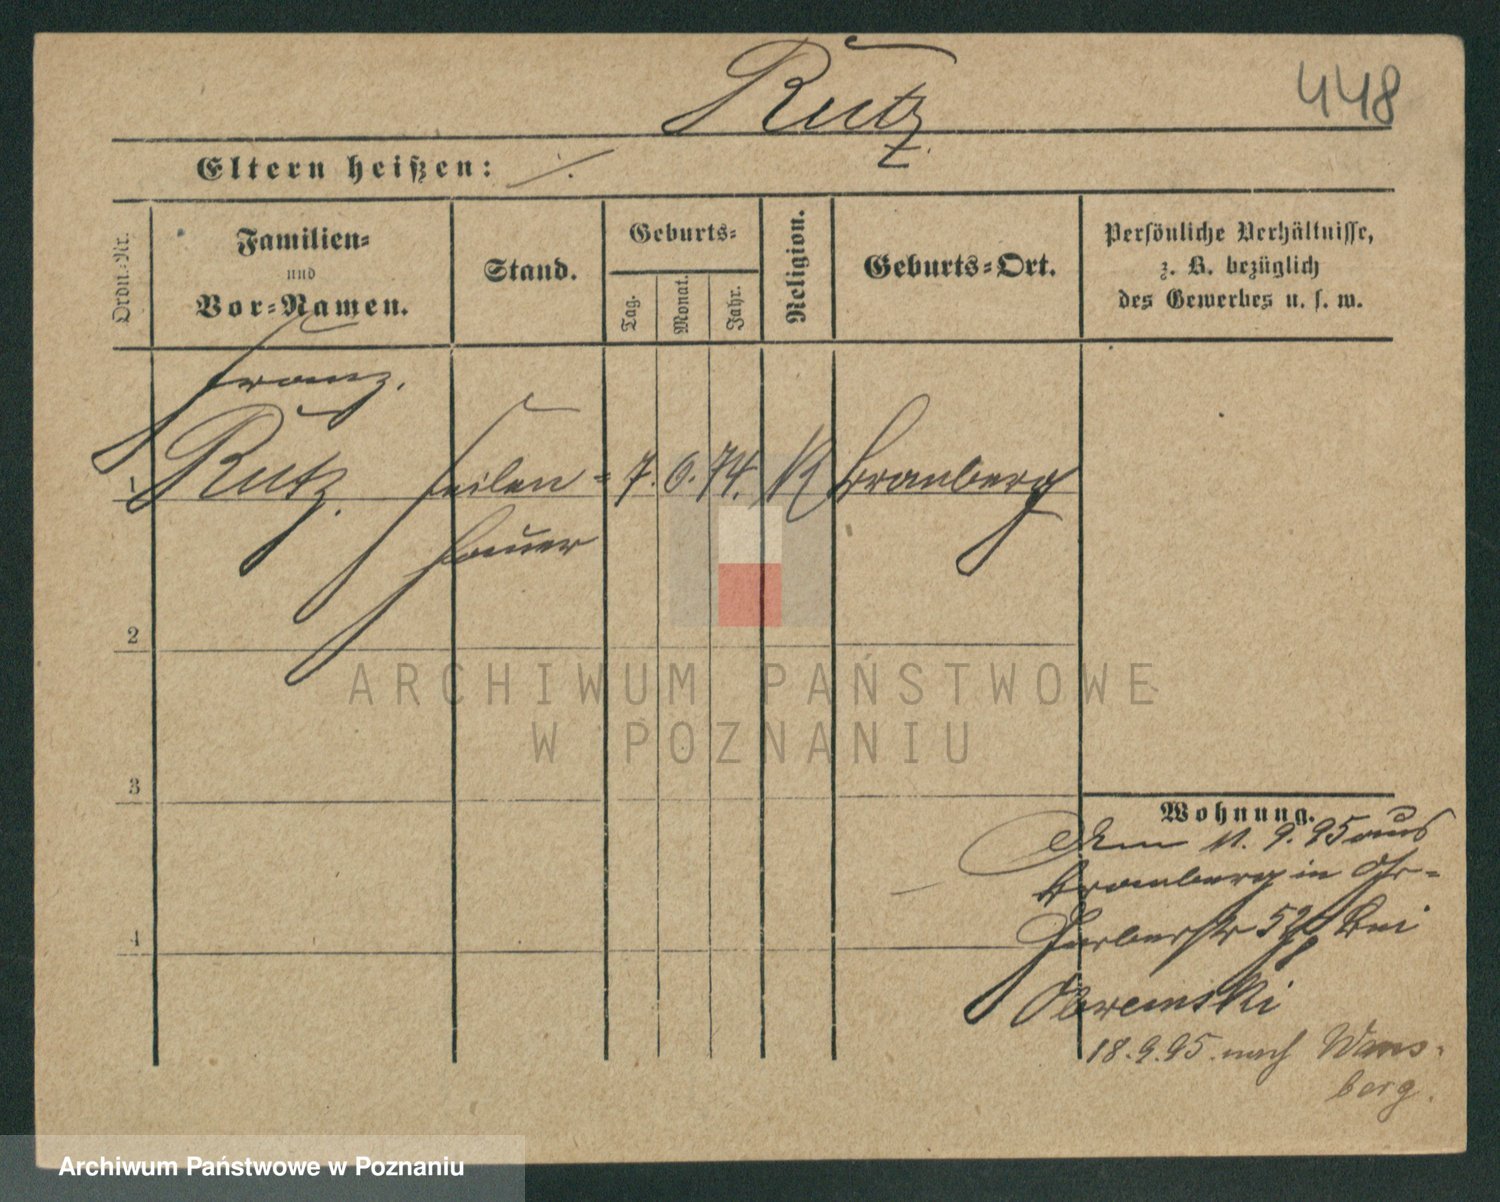 448
Rutz
Eltern heißen: ./.
Ordn.-Nr.
Familien-
und
Vor-Namen.
Stand.
Geburts-
Tag.
Monat.
Jahr.
Religion.
Geburts-Ort.
Persönliche Verhältnisse,
z. B. bezüglich
des Gewerbes u. s. w.
Franz.
1 Rutz. Feilen= 7. 6. 74. K
hauer
2
3
4
Wohnung.
11. 9. 95 aus
in
52 bei
18.9.95 nach
berg.
ARCHIWUM PAŃSTWOWE
W POZNANIU
Archiwum Państwowe w Poznaniu